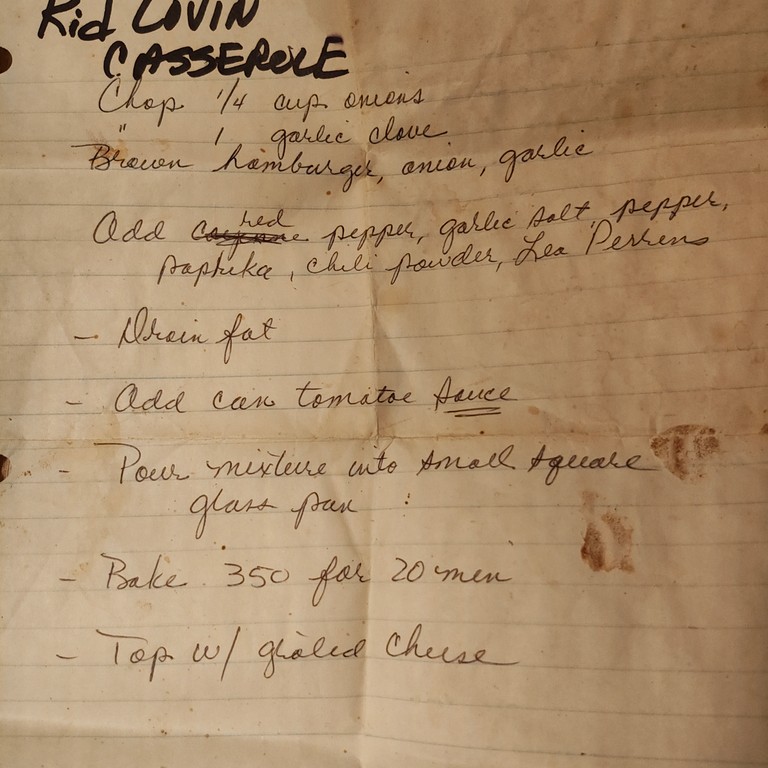 Kid LOVIN
CASSEROLE
Chop 1/4 cup onions
" 1 garlic clove
Brown hamburger, onion, garlic
Add cayenne red pepper, garlic salt, pepper,
paprika, chili powder, Lea Perrens
- Drain fat
- Add can tomatoe sauce
- Pour mixture into small square
glass pan
- Bake 350 for 20 min
- Top w/ grated cheese